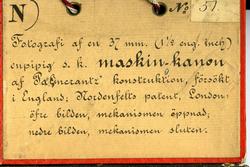 N) No 51.
Fotografi af en 37 mm. (1½ eng. inch)
enpipig s. k. maskin-kanon
af Palmcrantz' konstruktion, försökt
i England; Nordenfelts patent, London:
öfre bilden, mekanismen öppnad,
nedre bilden, mekanismen sluten.